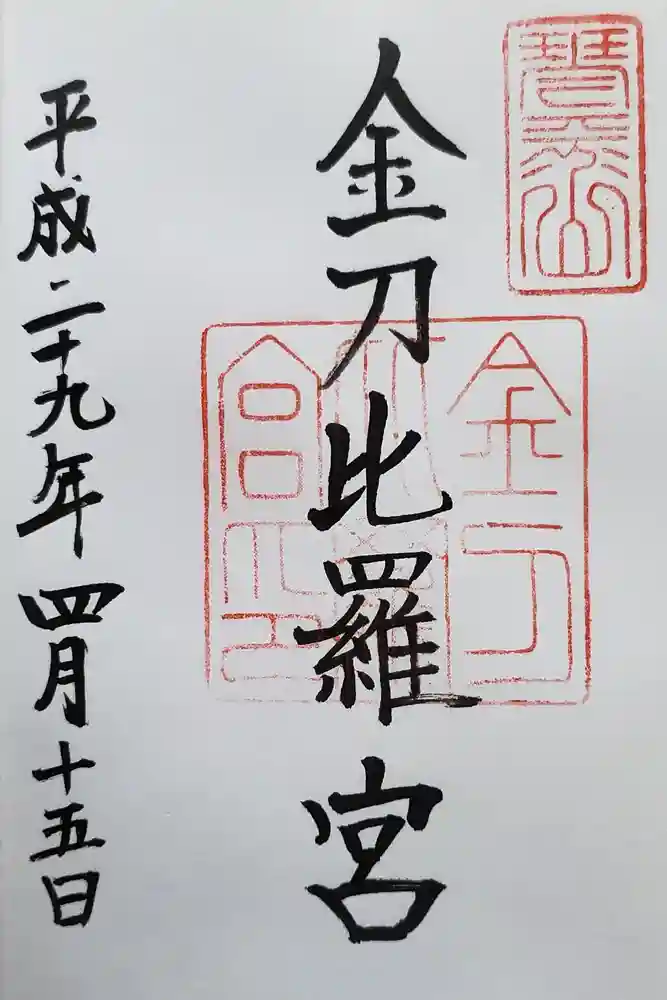 琴平山
金刀比羅宮
金刀比羅宮之印
平成二十九年四月十五日